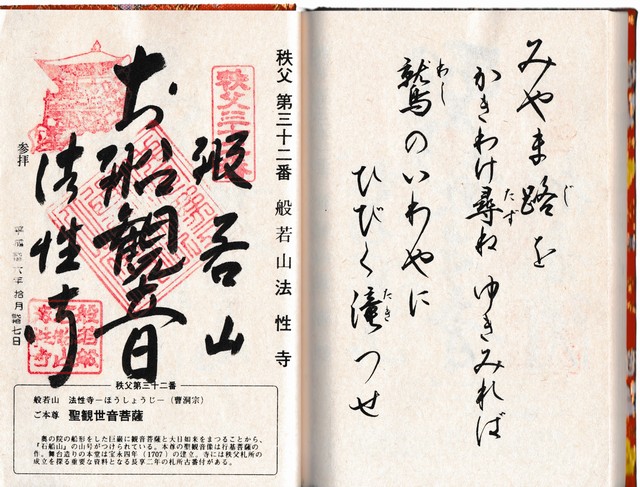 みやま路を
じ
かきわけ尋ね ゆきみれば
たず
鷲のいわやに
わし
ひびく瀧つせ
たき
秩父 第三十二番 般若山 法性寺
秩父三十二
般若山
お船観音
法性寺
参拝
平成 年拾月 七日
秩父第三十二番
般若山 法性寺―ほうしょうじ―(曹洞宗)
ご本尊 聖観世音菩薩
奥の院の船形をした巨巌に観音菩薩と大日如来をまつることから、
『石船山』の山号がつけられている。本尊の聖観音像は行基菩薩の
作。舞台造りの本堂は宝永四年(1707)の建立。寺には秩父札所の
成立を探る重要な資料となる長享二年の札所古番付がある。